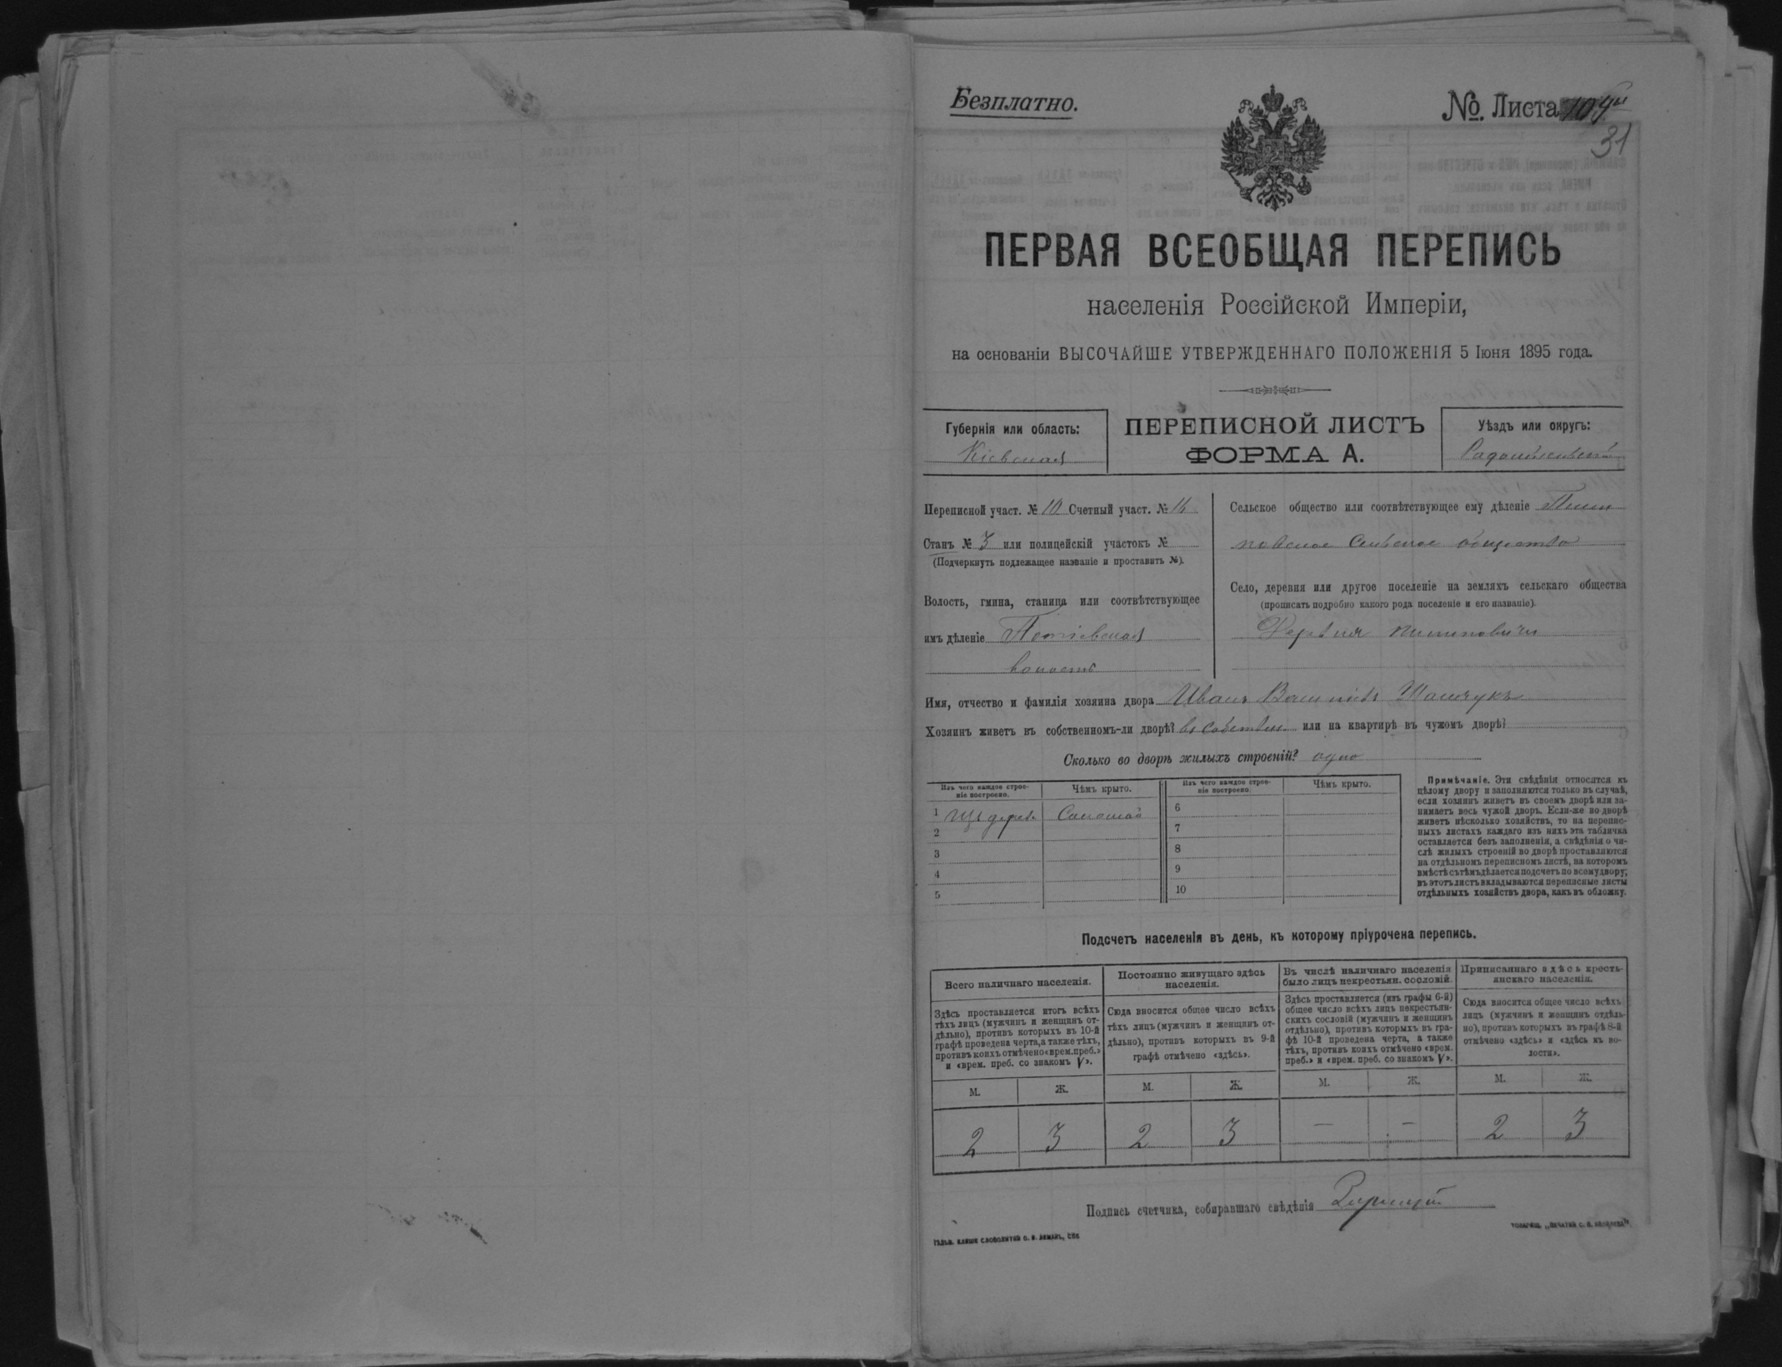 Безплатно.
№. Листа
31
ПЕРВАЯ ВСЕОБЩАЯ ПЕРЕПИСЬ
населенія Россійской Имперіи,
на основаніи ВЫСОЧАЙШЕ УТВЕРЖДЕННАГО ПОЛОЖЕНІЯ 5 Іюня 1895 года.
Губернія или область:
Кіевская
ПЕРЕПИСНОЙ ЛИСТЪ
ФОРМА А.
Уѣздъ или округъ:
Радомысльскій
Переписной участ. № 10 Счетный участ. №
Станъ № 3 или полицейскій участокъ №
(Подчеркнуть подлежащее названіе и проставить №).
Волость, гмина, станица или соотвѣтствующее
имъ дѣленіе
волость
Сельское общество или соотвѣтствующее ему дѣленіе
Сельское общество
Село, деревня или другое поселеніе на земляхъ сельскаго общества
(прописать подробно какого рода поселеніе и его названіе).
Деревня
Имя, отчество и фамилія хозяина двора Иванъ
Хозяинъ живетъ въ собственномъ-ли дворѣ? въ собствен или на квартирѣ въ чужомъ дворѣ?
Сколько во дворѣ жилыхъ строеній? одно
Изъ чего каждое строеніе построено.
Чѣмъ крыто.
Изъ чего каждое строеніе построено.
Чѣмъ крыто.
1 Изъ дерева Соломой
2
3
4
5
6
7
8
9
10
Примѣчаніе. Эти свѣдѣнія относятся къ
цѣлому двору и заполняются только въ случаѣ,
если хозяинъ живетъ въ своемъ дворѣ или за-
нимаетъ весь чужой дворъ. Если-же во дворѣ
живетъ нѣсколько хозяйствъ, то на перепис-
ныхъ листахъ каждаго изъ нихъ эта табличка
оставляется безъ заполненія, а свѣдѣнія о чи-
слѣ жилыхъ строеній во дворѣ проставляются
на отдѣльномъ переписномъ листѣ, на которомъ
вмѣстѣ съ тѣмъ дѣлается подсчетъ по всему двору;
въ этотъ листъ вкладываются переписные листы
отдѣльныхъ хозяйствъ двора, какъ въ обложку.
Подсчетъ населенія въ день, къ которому пріурочена перепись.
Всего наличнаго населенія.
Здѣсь проставляется итогъ всѣхъ
тѣхъ лицъ (мужчинъ и женщинъ от-
дѣльно), противъ которыхъ въ 10-й
графѣ проведена черта, а также тѣхъ,
противъ коихъ отмѣчено «врем. преб.»
и «врем. преб. со знакомъ V».
Постоянно живущаго здѣсь
населенія.
Сюда вносится общее число всѣхъ
тѣхъ лицъ (мужчинъ и женщинъ от-
дѣльно), противъ которыхъ въ 9-й
графѣ отмѣчено «здѣсь».
Въ числѣ наличнаго населенія
было лицъ некрестьян. сословій.
Здѣсь проставляется (изъ графы 6-й)
общее число всѣхъ лицъ некрестьян-
скихъ сословій (мужчинъ и женщинъ
отдѣльно), противъ которыхъ въ гра-
фѣ 10-й проведена черта, а также
тѣхъ, противъ коихъ отмѣчено «врем.
преб.» и «врем. преб. со знакомъ V».
Приписаннаго здѣсь кресть-
янскаго населенія.
Сюда вносится общее число всѣхъ
лицъ (мужчинъ и женщинъ отдѣль-
но), противъ которыхъ въ графѣ 8-й
отмѣчено «здѣсь» и «здѣсь къ во-
лости».
М. Ж. М. Ж. М. Ж. М. Ж.
2 3 2 3 — — 2 3
Подпись счетчика, собиравшаго свѣдѣнія